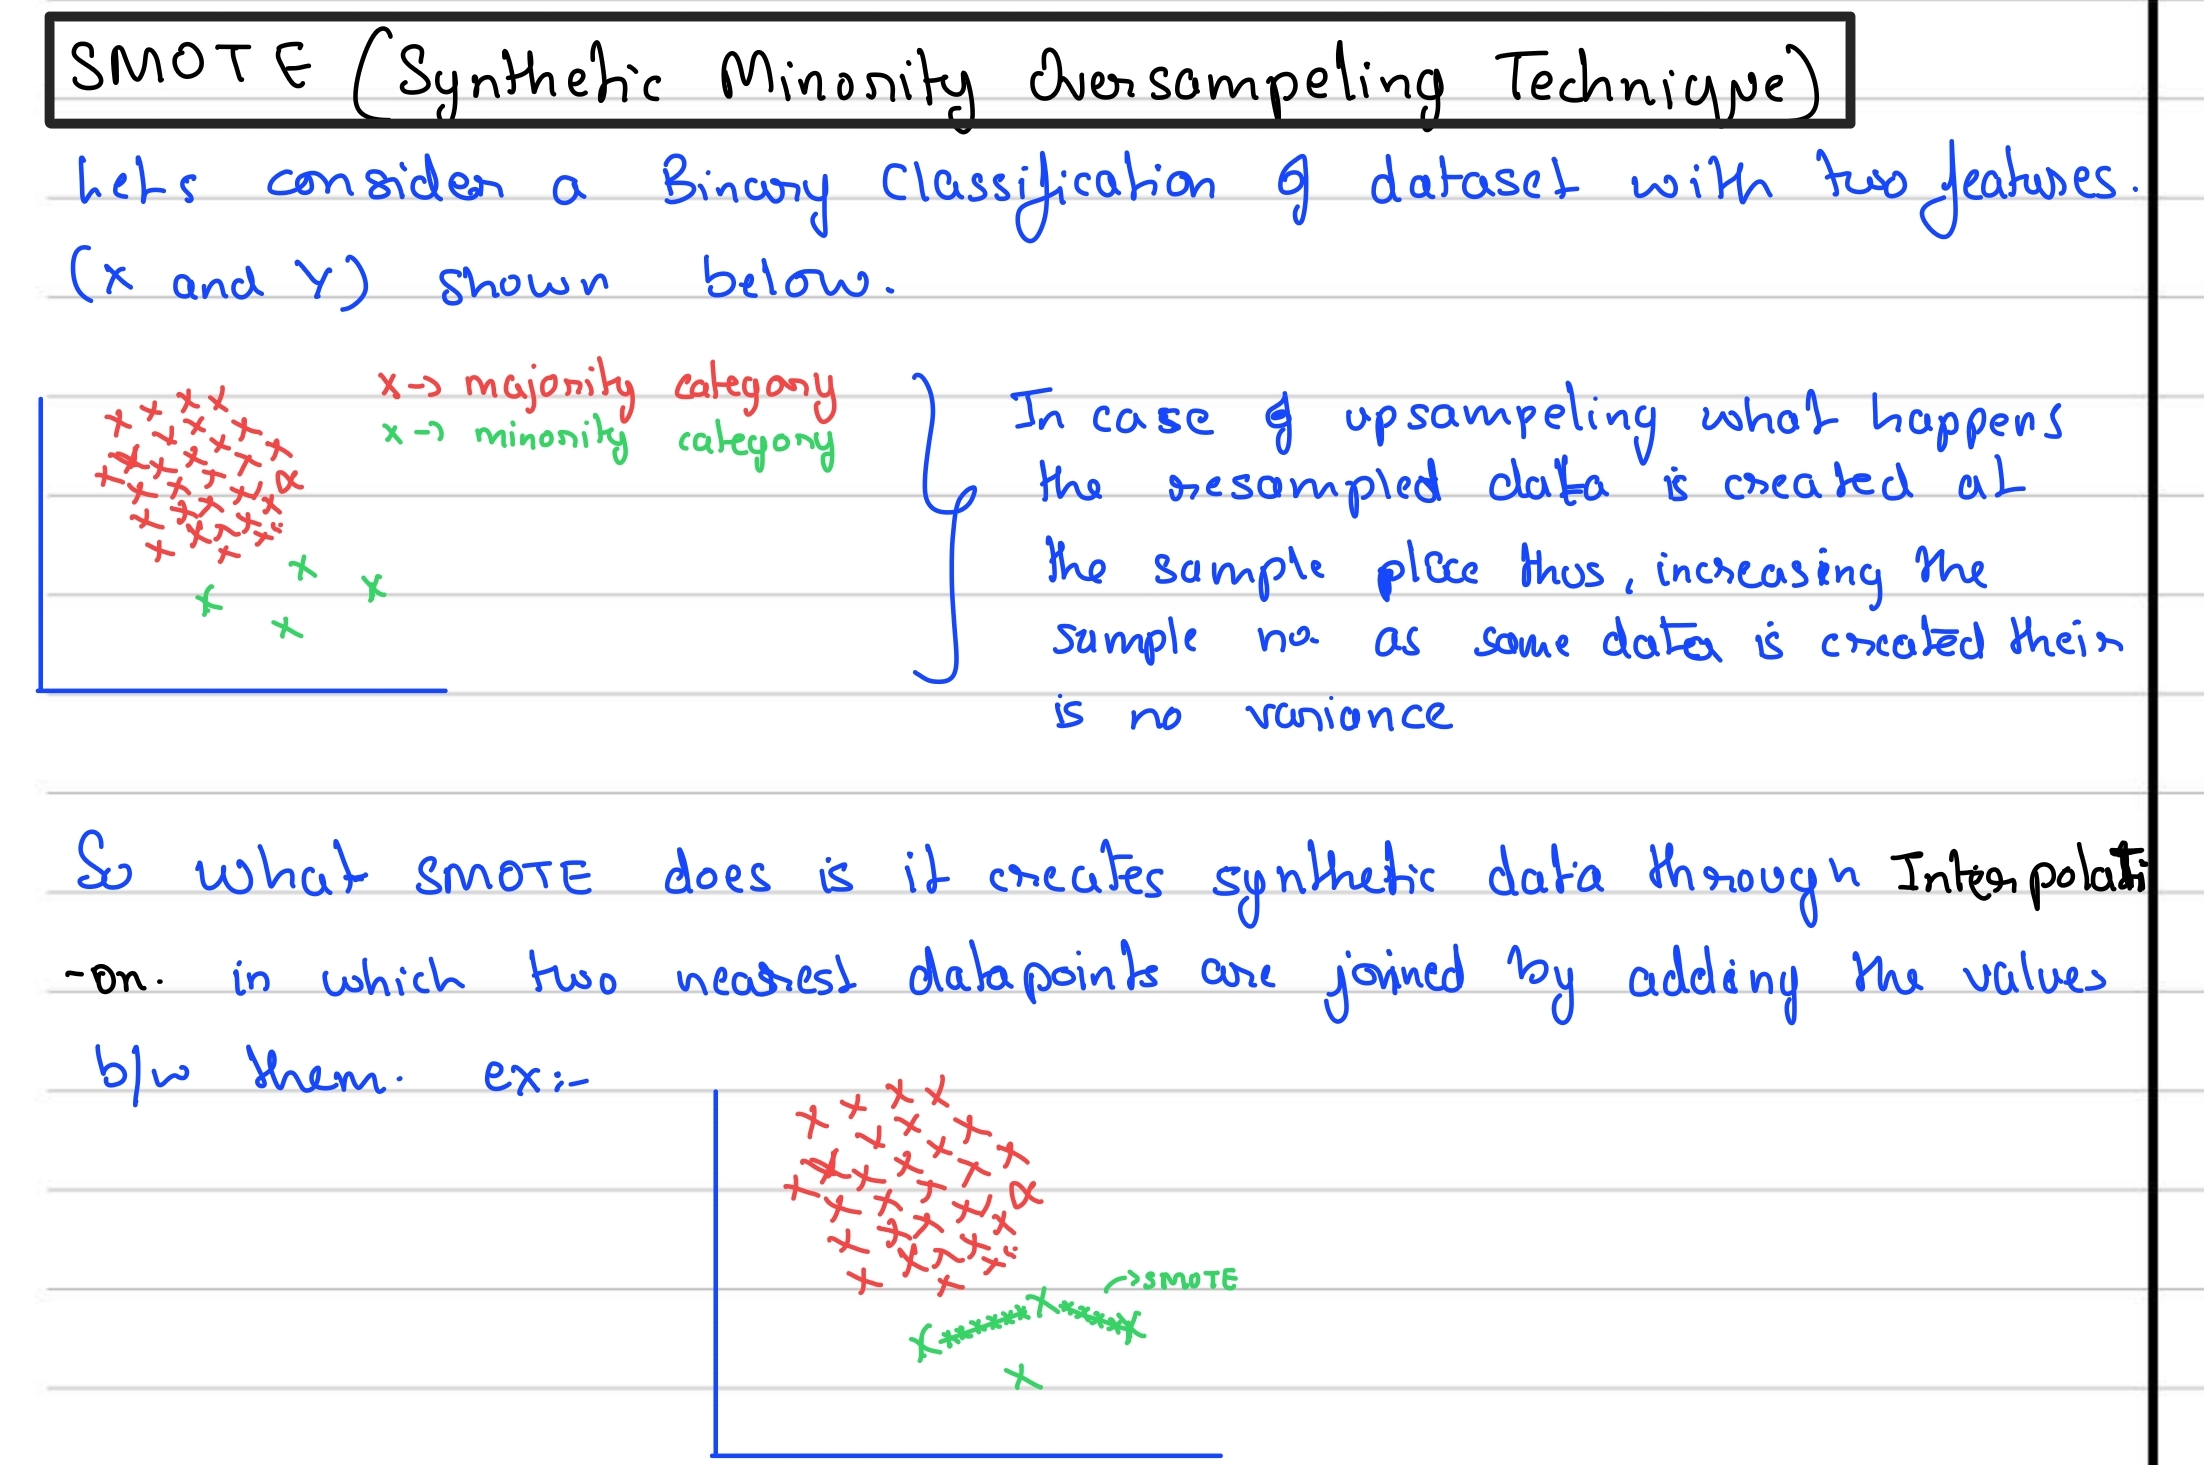 SMOTE (Synthetic Minority Oversampeling Technique)
Lets consider a Binary Classification of dataset with two features.
(x and y) shown below.
x → majority category
x → minority category
In case of upsampeling what happens
the resampled data is created at
the sample place thus, increasing the
sample no. as same data is created their
is no variance
So what SMOTE does is it creates synthetic data through Interpolati
-on. in which two nearest datapoints are joined by adding the values
b/w them. ex:-
→ SMOTE